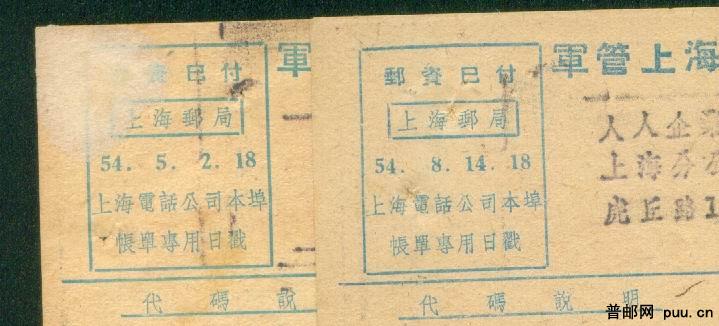 資已付
上海郵局
54. 5. 2. 18
上海電話公司本埠
帳單專用日戳
代碼說
軍
郵資已付
上海郵局
54. 8. 14. 18
上海電話公司本埠
帳單專用日戳
代碼說明
軍管上海
人人企業
上海分
虎丘路1
普邮网 puu.cn